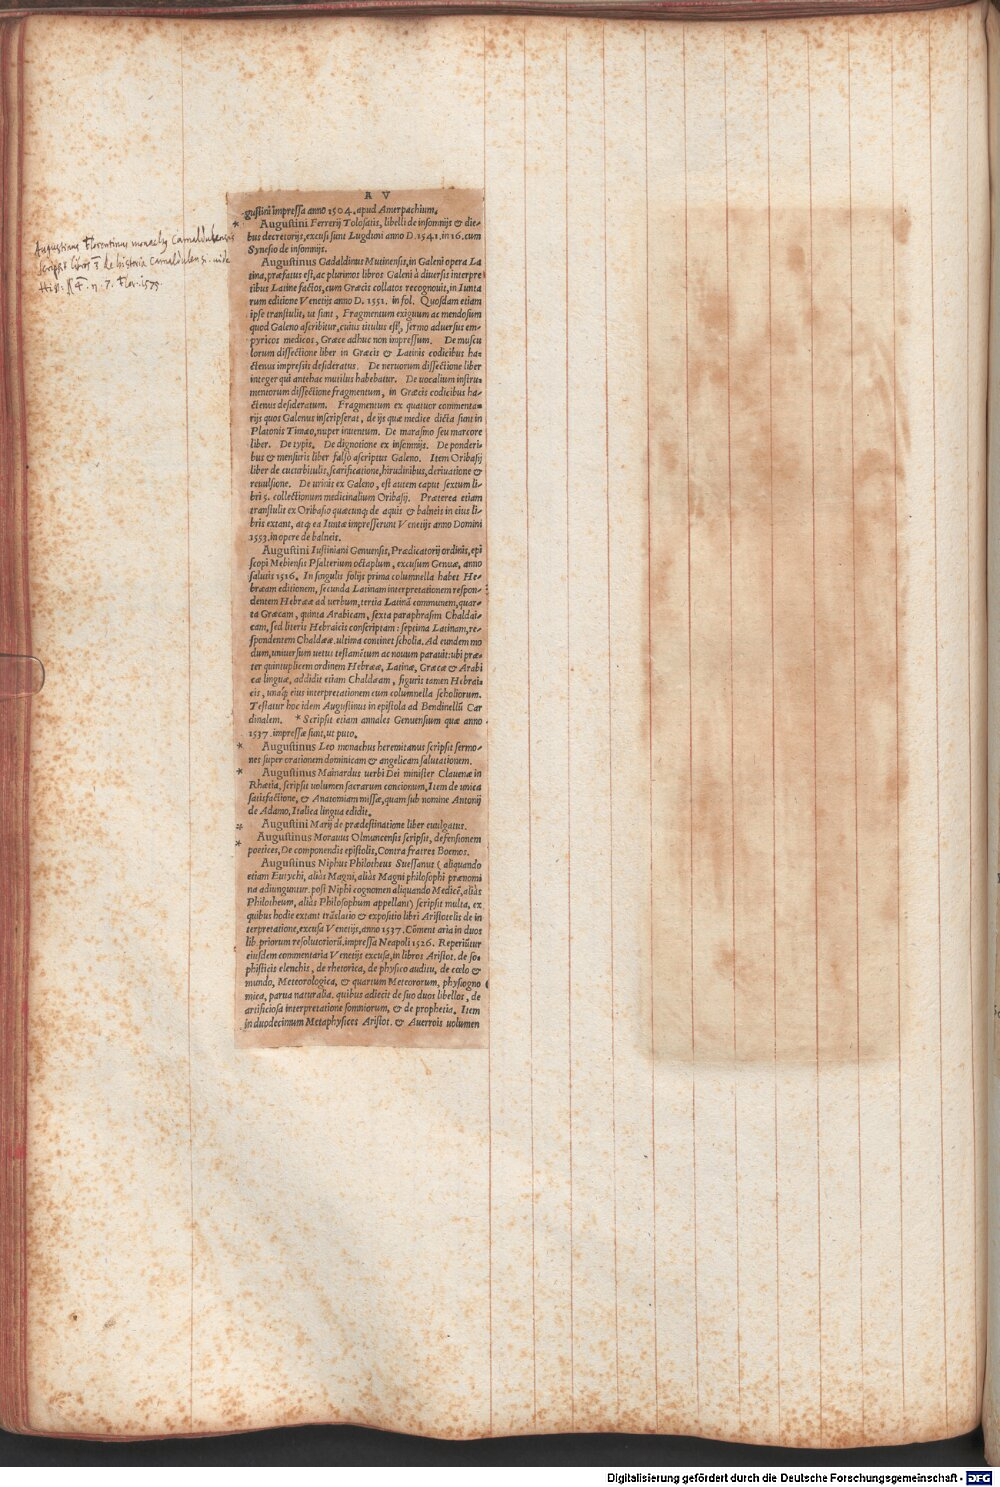 A V
gustini impressa anno 1504. apud Amerpachium.
* Augustini Ferrerij Tolosatis, libelli de insomnijs & die-
bus decretorijs, excusi sunt Lugduni anno D. 1541. in 16. cum
Synesio de insomnijs.
Augustinus Gadaldinus Mutinensis, in Galeni opera La
tina, præfatus est, ac plurimos libros Galeni à diuersis interpre
tibus Latine factos, cum Græcis collatos recognouit, in Iunta
rum editione Venetijs anno D. 1551. in fol. Quosdam etiam
ipse transtulit, ut sunt, Fragmentum exiguum ac mendosum
quod Galeno ascribitur, cuius titulus est, sermo aduersus em-
pyricos medicos, Græce adhuc non impressum. De muscu
lorum dissectione liber in Græcis & Latinis codicibus ha-
ctenus impresis desideratus. De neruorum dissectione liber
integer qui antehac mutilus habebatur. De uocalium instru-
mentorum dissectione fragmentum, in Græcis codicibus ha-
ctenus desideratum. Fragmentum ex quatuor commenta-
rijs quos Galenus inscripserat, de ijs quæ medice dicta sunt in
Platonis Timæo, nuper inuentum. De marasmo seu marcore
liber. De typis. De dignotione ex insomnijs. De ponderi-
bus & mensuris liber falsò ascriptus Galeno. Item Oribasij
liber de cucurbitulis, scarificatione, hirudinibus, deriuatione &
reuulsione. De urinis ex Galeno, est autem caput sextum li-
bri 5. collectionum medicinalium Oribasij. Præterea etiam
transtulit ex Oribasio quæcunq; de aquis & balneis in eius li-
bris extant, atq; ea Iuntæ impresserunt Venetijs anno Domini
1553. in opere de balneis.
Augustini Iustiniani Genuensis, Prædicatorij ordinis, epi
scopi Nebiensis Psalterium octaplum, excusum Genuæ, anno
salutis 1516. In singulis folijs prima columnella habet He-
bræam editionem, secunda Latinam interpretationem respon-
dentem Hebrææ ad uerbum, tertia Latinã communem, quar-
ta Græcam, quinta Arabicam, sexta paraphrasim Chaldai-
cam, sed literis Hebraicis conscriptam: septima Latinam, re-
spondentem Chaldææ. ultima continet scholia. Ad eundem mo
dum, uniuersum uetus testamẽtum ac nouum parauit: ubi præ-
ter quintuplicem ordinem Hebrææ, Latinæ, Græcæ & Arabi
cæ linguæ, addidit etiam Chaldæam, figuris tamen Hebrai-
cis, unaq; eius interpretationem cum columnella scholiorum.
Testatur hoc idem Augustinus in epistola ad Bendinellũ Car
dinalem. * Scripsit etiam annales Genuensium quæ anno
1537. impressæ sunt, ut puto.
* Augustinus Leo monachus heremitanus scripsit sermo-
nes super orationem dominicam & angelicam salutationem.
* Augustinus Mainardus uerbi Dei minister Clauenæ in
Rhætia, scripsit uolumen sacrarum concionum, Item de unica
satisfactione, & Anatomiam missæ, quam sub nomine Antonij
de Adamo, Italica lingua edidit.
* Augustini Marij de prædestinatione liber euulgatus.
* Augustinus Morauus Olmucensis scripsit, defensionem
poetices, De componendis epistolis, Contra fratres Boemos.
Augustinus Niphus Philotheus Suessanus (aliquando
etiam Eutychi, aliàs Magni, aliàs Magni philosophi prænomi
na adiunguntur. post Niphi cognomen aliquando Medicẽ, aliàs
Philotheum, aliàs Philosophum appellant) scripsit multa, ex
quibus hodie extant trãslatio & expositio libri Aristotelis de in
terpretatione, excusa Venetijs, anno 1537. Cõmentaria in duos
lib. priorum resolutoriorũ, impressa Neapoli 1526. Reperiũtur
eiusdem commentaria Venetijs excusa, in libros Aristot. de so-
phisticis elenchis, de rhetorica, de physico auditu, de cœlo &
mundo, Meteorologica, & quartum Meteororum, physiogno
mica, parua naturalia. quibus adiecit de suo duos libellos, de
artificiosa interpretatione somniorum, & de prophetia. Item
in duodecimum Metaphysices Aristot. & Auerrois uolumen
Augustinus Florentinus monachus Camaldulensis
scripsit libros 3 de historia Camaldulensi. uide
Flor. 1579.
Digitalisierung gefördert durch die Deutsche Forschungsgemeinschaft - DFG